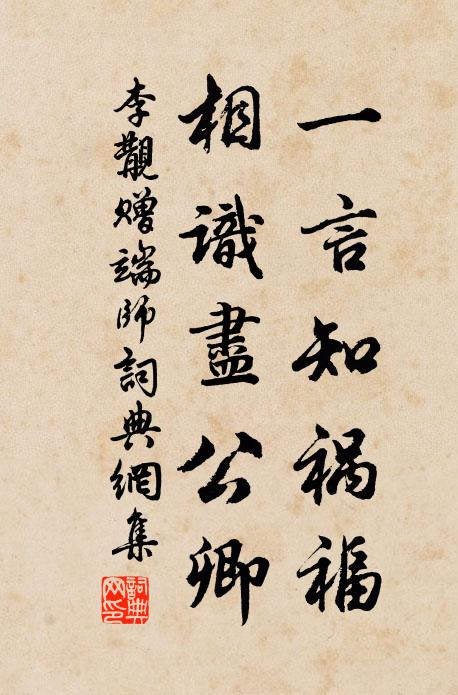 一言知祸福
相識盡公卿
李覯贈端師詞典網集
詞典网印